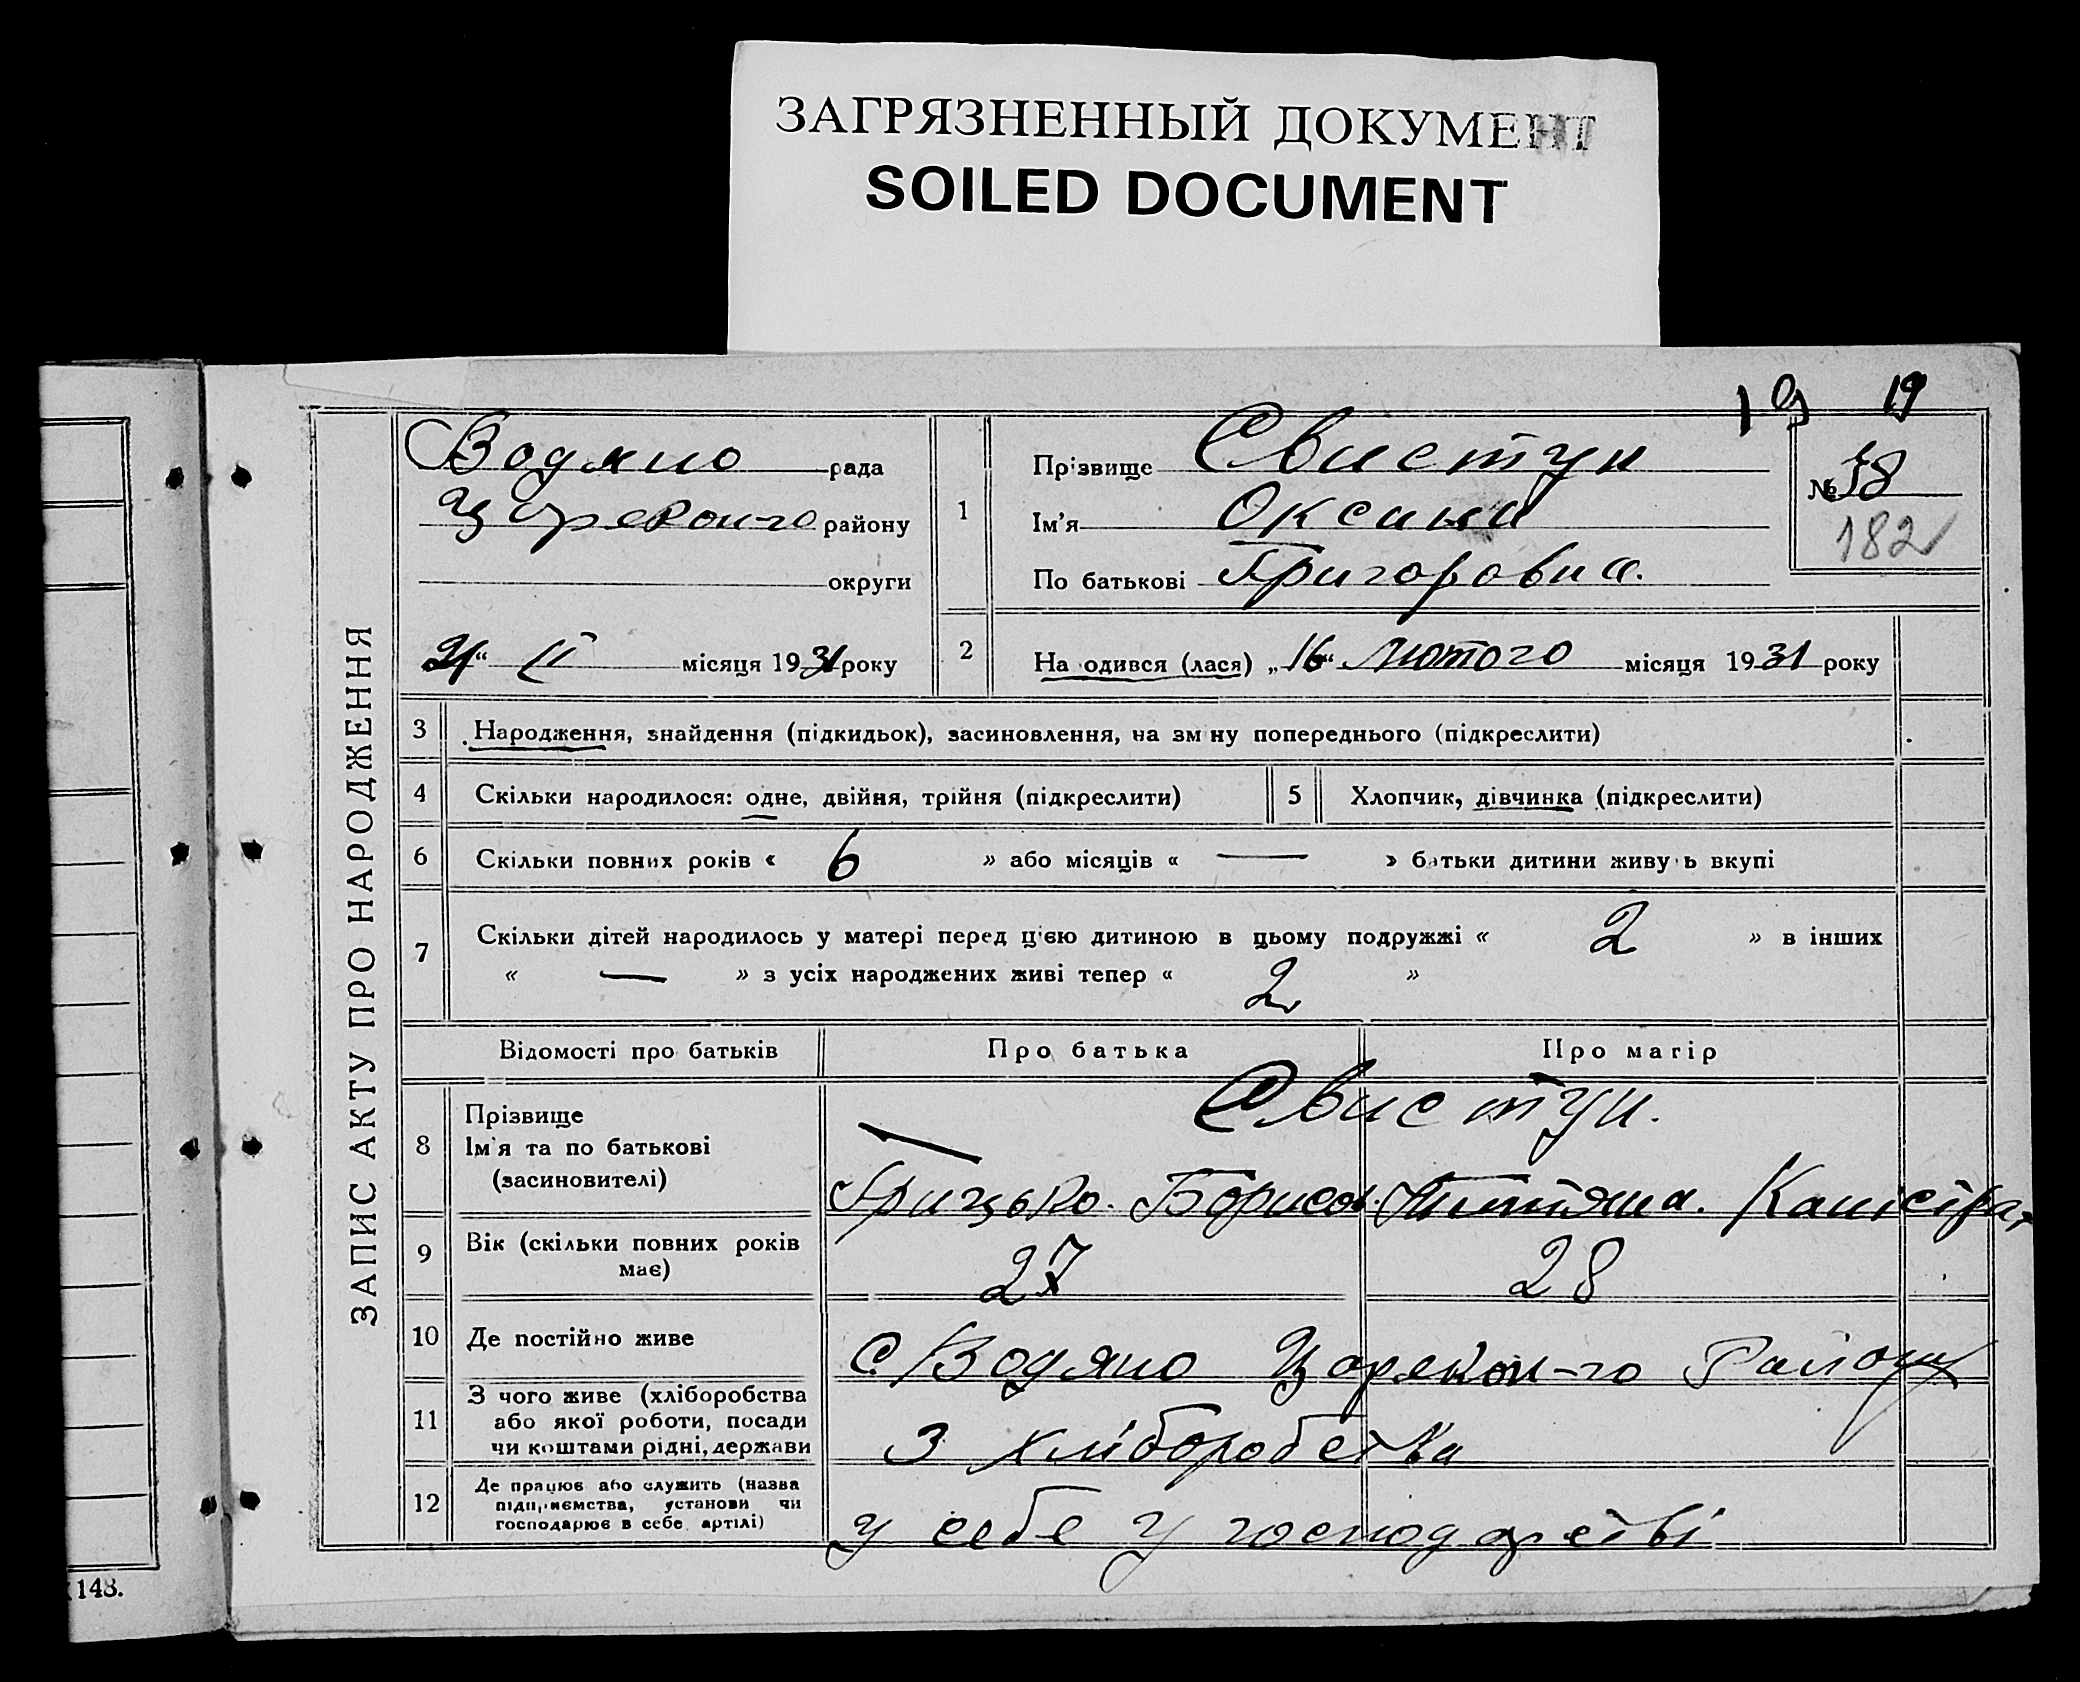 ЗАГРЯЗНЕННЫЙ ДОКУМЕНТ
SOILED DOCUMENT
19 19
ЗАПИС АКТУ ПРО НАРОДЖЕННЯ
Водяно рада
Царекон-го району
округи
21 " II місяця 1931 року
1
Прізвище Свистун
Ім'я Оксана
По батькові Григоровна.
№ 18
182
2
На одився (лася) „16" Лютого місяця 1931 року
3 Народження, знайдення (підкидьок), засиновлення, на зміну попереднього (підкреслити)
4 Скільки народилося: одне, двійня, трійня (підкреслити)
5 Хлопчик, дівчинка (підкреслити)
6 Скільки повних років « 6 » або місяців « — » батьки дитини живуть вкупі
7 Скільки дітей народилось у матері перед цією дитиною в цьому подружжі « 2 » в інших
« — » з усіх народжених живі тепер « 2 »
Відомості про батьків Про батька Про матір
8 Прізвище
Ім'я та по батькові
(засиновителі)
Свистун.
Грицько. Борисов. Титтяна. Каністра
9 Вік (скільки повних років
має)
27 28
10 Де постійно живе
С. Водяно Царекон-го Району
11 З чого живе (хліборобства
або якої роботи, посади
чи коштами рідні, держави
З хліборобства
12 Де працює або служить (назва
підприємства, установи чи
господарює в себе артілі)
у себе у господарстві
148.